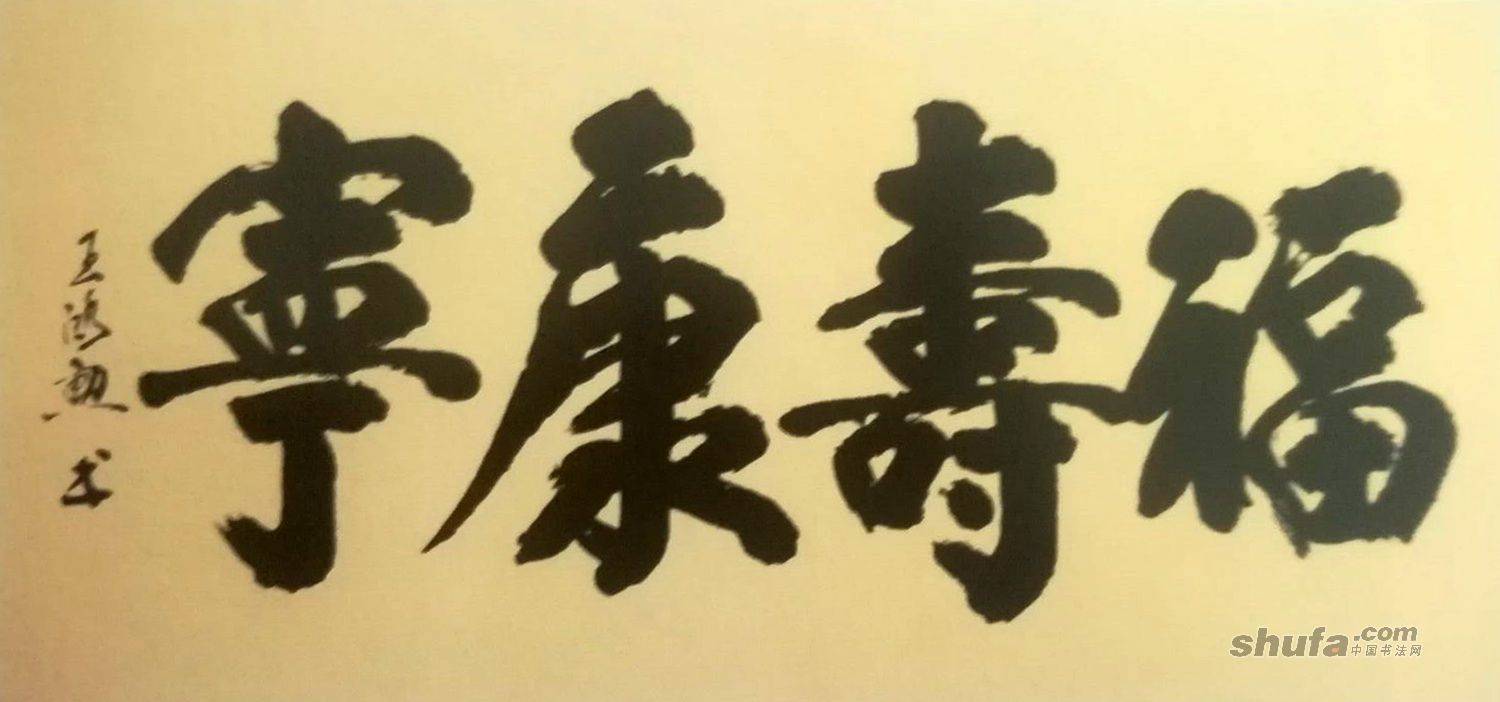 福壽康寧
王鴻勳书
shufa.com
中国书法网